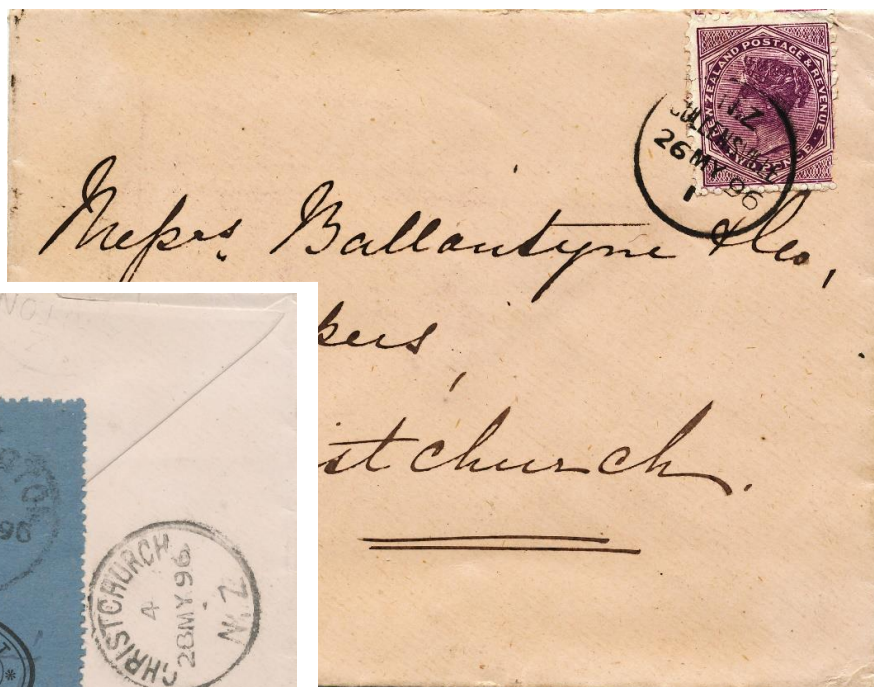 NEW ZEALAND POSTAGE & REVENUE
TWO PENCE
N.Z
26 MY 96
1
Messrs Ballantyne & Co,
kers,
istchurch.
96
CHRISTCHURCH
4
28MY96
N.Z